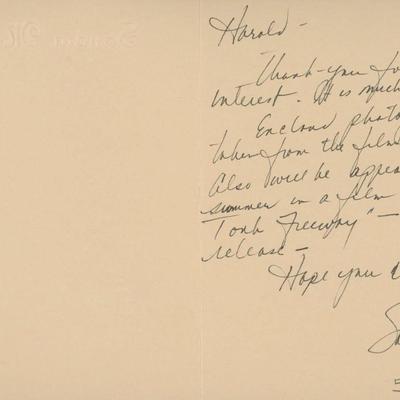 Harold -
Thank-you fo
interest. It is much
Enclosed photo
taken from the film
Also will be appea
summer in a film
Tonk Freeway" -
release -
Hope you
Sa
5